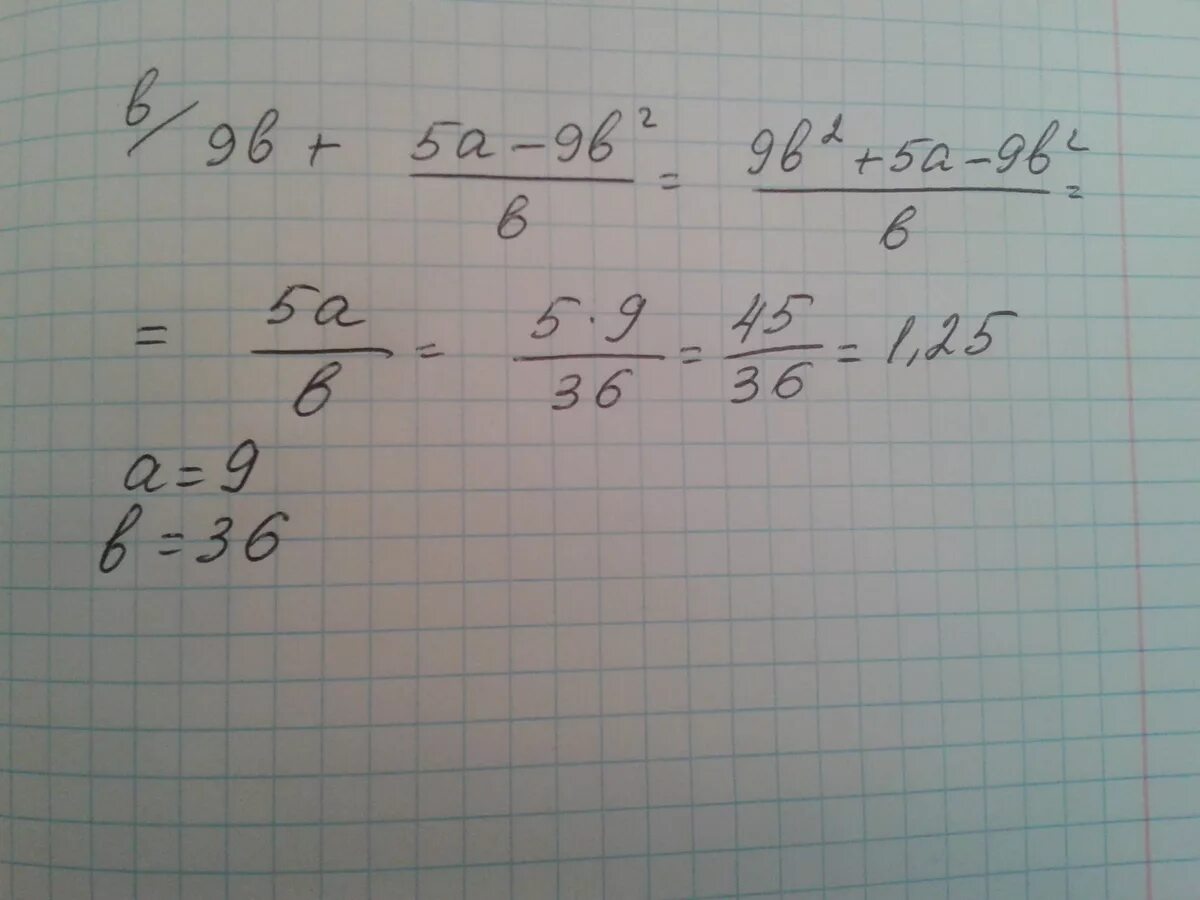 в/ 9в + (5а - 9в²)/в = (9в² + 5а - 9в²)/в =
= 5а/в = 5·9/36 = 45/36 = 1,25
а = 9
в = 36